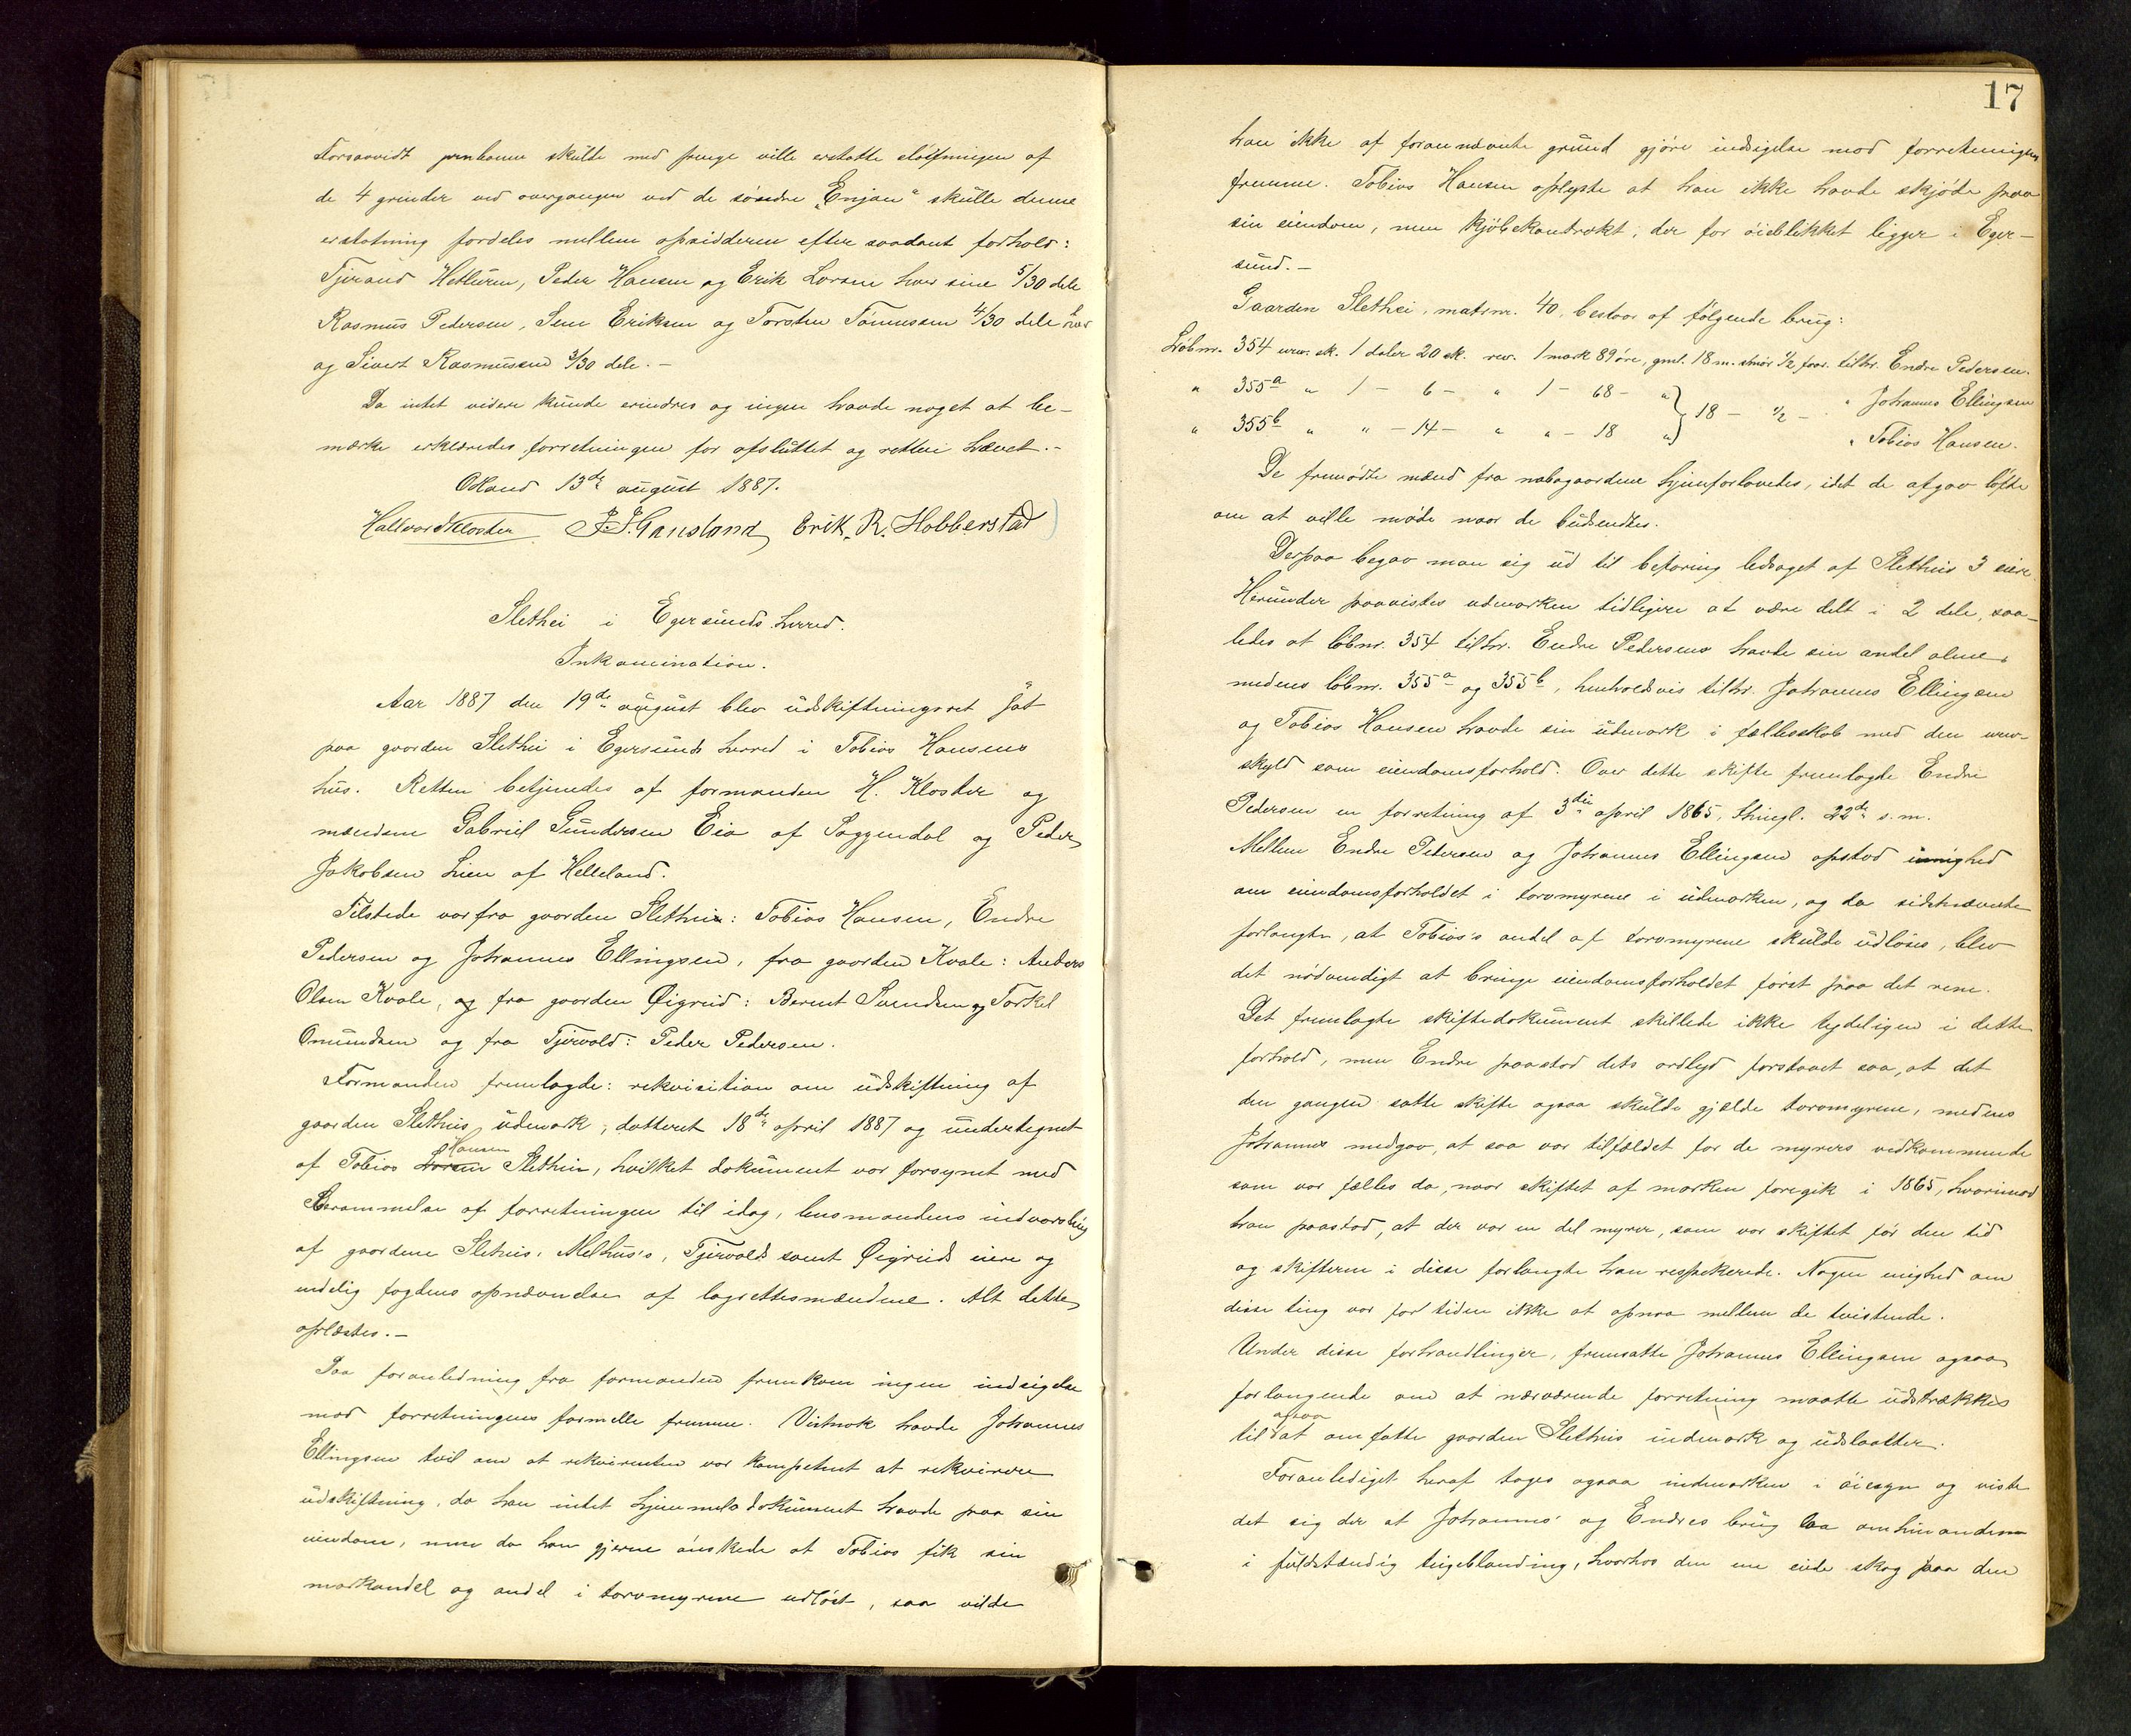 Forsaavidt jernbanen skulde med penge ville erstatte sløifningen af
de 4 grinder ved overgangen ved de søndre "Enjan" skulle denne
erstatning fordeles mellem opsidderne efter saadant forhold:
Tjerand Hetluren, Peder Hansen og Erik Larsen hver sine 5/30 dele
Rasmus Pedersen, Sem Eriksen og Torsten Tønnessen 4/30 dele hver
og Sivert Rasmussen 3/30 dele. -
Da intet videre kunde erindres og ingen havde noget at be-
mærke erklæredes forretningen for afsluttet og retten hævet. -
Odland 13de august 1887.
Hallvard Kloster J. J. Gausland Erik. R. Hobberstad
Slethei i Egersunds herred.
Inkamination.
Aar 1887 den 19de august blev udskiftningsret sat
paa gaarden Slethei i Egersunds herred i Tobias Hansens
hus. Retten betjenedes af formanden H. Kloster og
mændene Gabriel Gundersen Eia af Soggendal og Peder
Jakobsen Lien af Helleland.
Tilstede var fra gaarden Slethei: Tobias Hansen, Endre
Pedersen og Johannes Ellingsen, fra gaarden Kvale: Anders
Olsen Kvale, og fra gaarden Øigreid: Berent Svendsen og Torkel
Omundsen og fra Tjørvald: Peder Pedersen.
Formanden fremlagde: rekvisition om udskiftning af
gaarden Sletheis udmark, datteret 18de april 1887 og undertegnet
Hansen
af Tobias Larsen Slethei, hvilket dokument var forsynet med
Berammelse af forretningen til idag, lensmandens indvarsling
af gaardene Sletheis, Melhus's, Tjørvalds samt Øigreids eiere og
endelig fogdens opnævnelse af lagrettesmændene. Alt dette
oplæstes. -
Paa foranledning fra formanden fremkom ingen indsigelse
mod forretningens formelle fremme. Vistnok havde Johannes
Ellingsen tvil om at rekvirenten var kompetent at rekvirere
udskiftning, da han intet hjemmelsdokument havde paa sin
eiendom, men da han gjerne ønskede at Tobias fik sin
markandel og andel i torvmyrene udløst, saa vilde
17
han ikke af forannævnte grund gjøre indsigelse mod forretningens
fremme. Tobias Hansen oplyste at han ikke havde skjøde paa
sin eiendom, men kjøbekontrakt, der for øieblikket ligger i Eger-
sund. -
Gaarden Slethei, matr.nr. 40, bestaar af følgende brug:
Løbnr. 354 urev. sk. 1 daler 20 sk. rev. 1 mark 89 øre, gml. 18 m. smør 1/2 faar. tilhr. Endre Pedersen.
" 355a " 1 - 6 - " 1 - 68 - " } 18 - 1/2 - " Johannes Ellingsen
" 355b " " - 14 - " " - 18 " } " Tobias Hansen.
De fremødte mænd fra nabogaardene hjemforlovedes, idet de afgav løfte
om at ville møde naar de budsendtes.
Derpaa begav man sig ud til befaring ledsaget af Sletheis 3 eiere.
Herunder paavistes udmarken tidligere at være delt i 2 dele, saa-
ledes at løbnr. 354 tilhr. Endre Pedersens havde sin andel alene,
medens løbnr. 355a og 355b, henholdsvis tilhr. Johannes Ellingsen
og Tobias Hansen havde sin udmark i fællesskab med den urev.
skyld som eiendomsforhold. Over dette skifte fremlagde Endre
Pedersen en forretning af 3die april 1865, thingl. 22de s.m.
Mellem Endre Pedersen og Johannes Ellingsen opstod uenighed
om eiendomsforholdet i torvmyrene i udmarken, og da sidstnævnte
forlangte, at Tobias's andel af torvmyrene skulde udløses, blev
det nødvendigt at bringe eiendomsforholdet først paa det rene.
Det fremlagte skiftedokument skillede ikke tydeligen i dette
forhold, men Endre paastod dets ordlyd forstaaet saa, at det
den gangen satte skifte ogsaa skulde gjælde torvmyrene, medens
Johannes medgav, at saa var tilfældet for de myrers vedkommende
som var fælles da, naar skiftet af marken foregik i 1865, hvorimod
han paastod, at der var en del myrer, som var skiftet før den tid
og skifterne i disse forlangte han respekterede. Nogen enighed om
disse ting var for tiden ikke at opnaa mellem de tvistende.
Under disse forhandlinger, fremsatte Johannes Ellingsen ogsaa
forlangende om at nærværende forretning maatte udstrækkes
ogsaa
til at omfatte gaarden Sletheis indmark og udslaatter.
Foranlediget heraf toges ogsaa indmarken i øiesyn og viste
det sig der at Johannes' og Endres brug laa om hinanden
i fuldstændig teigeblanding, hvorhos den ene eiede skog paa den